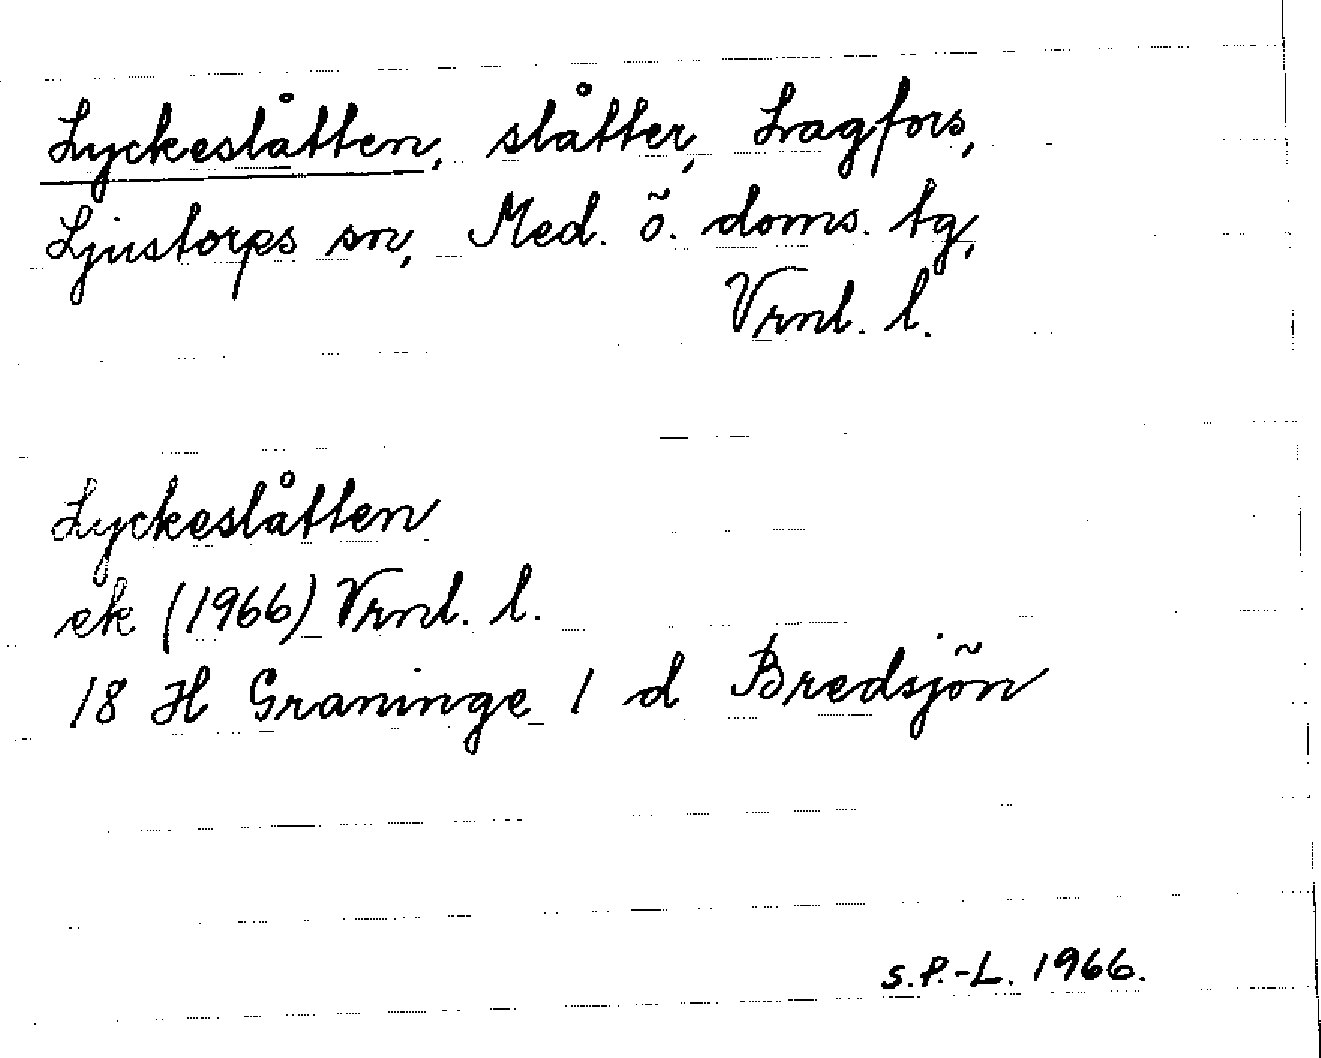 Lyckeslåtten, slåtter, Lagfors,
Ljustorps sn, Med. ö. doms. tg,
Vrnl. l.
Lyckeslåtten
ek (1966) Vrnl. l.
18 H Graninge 1 d Bredsjön
S.P.-L. 1966.